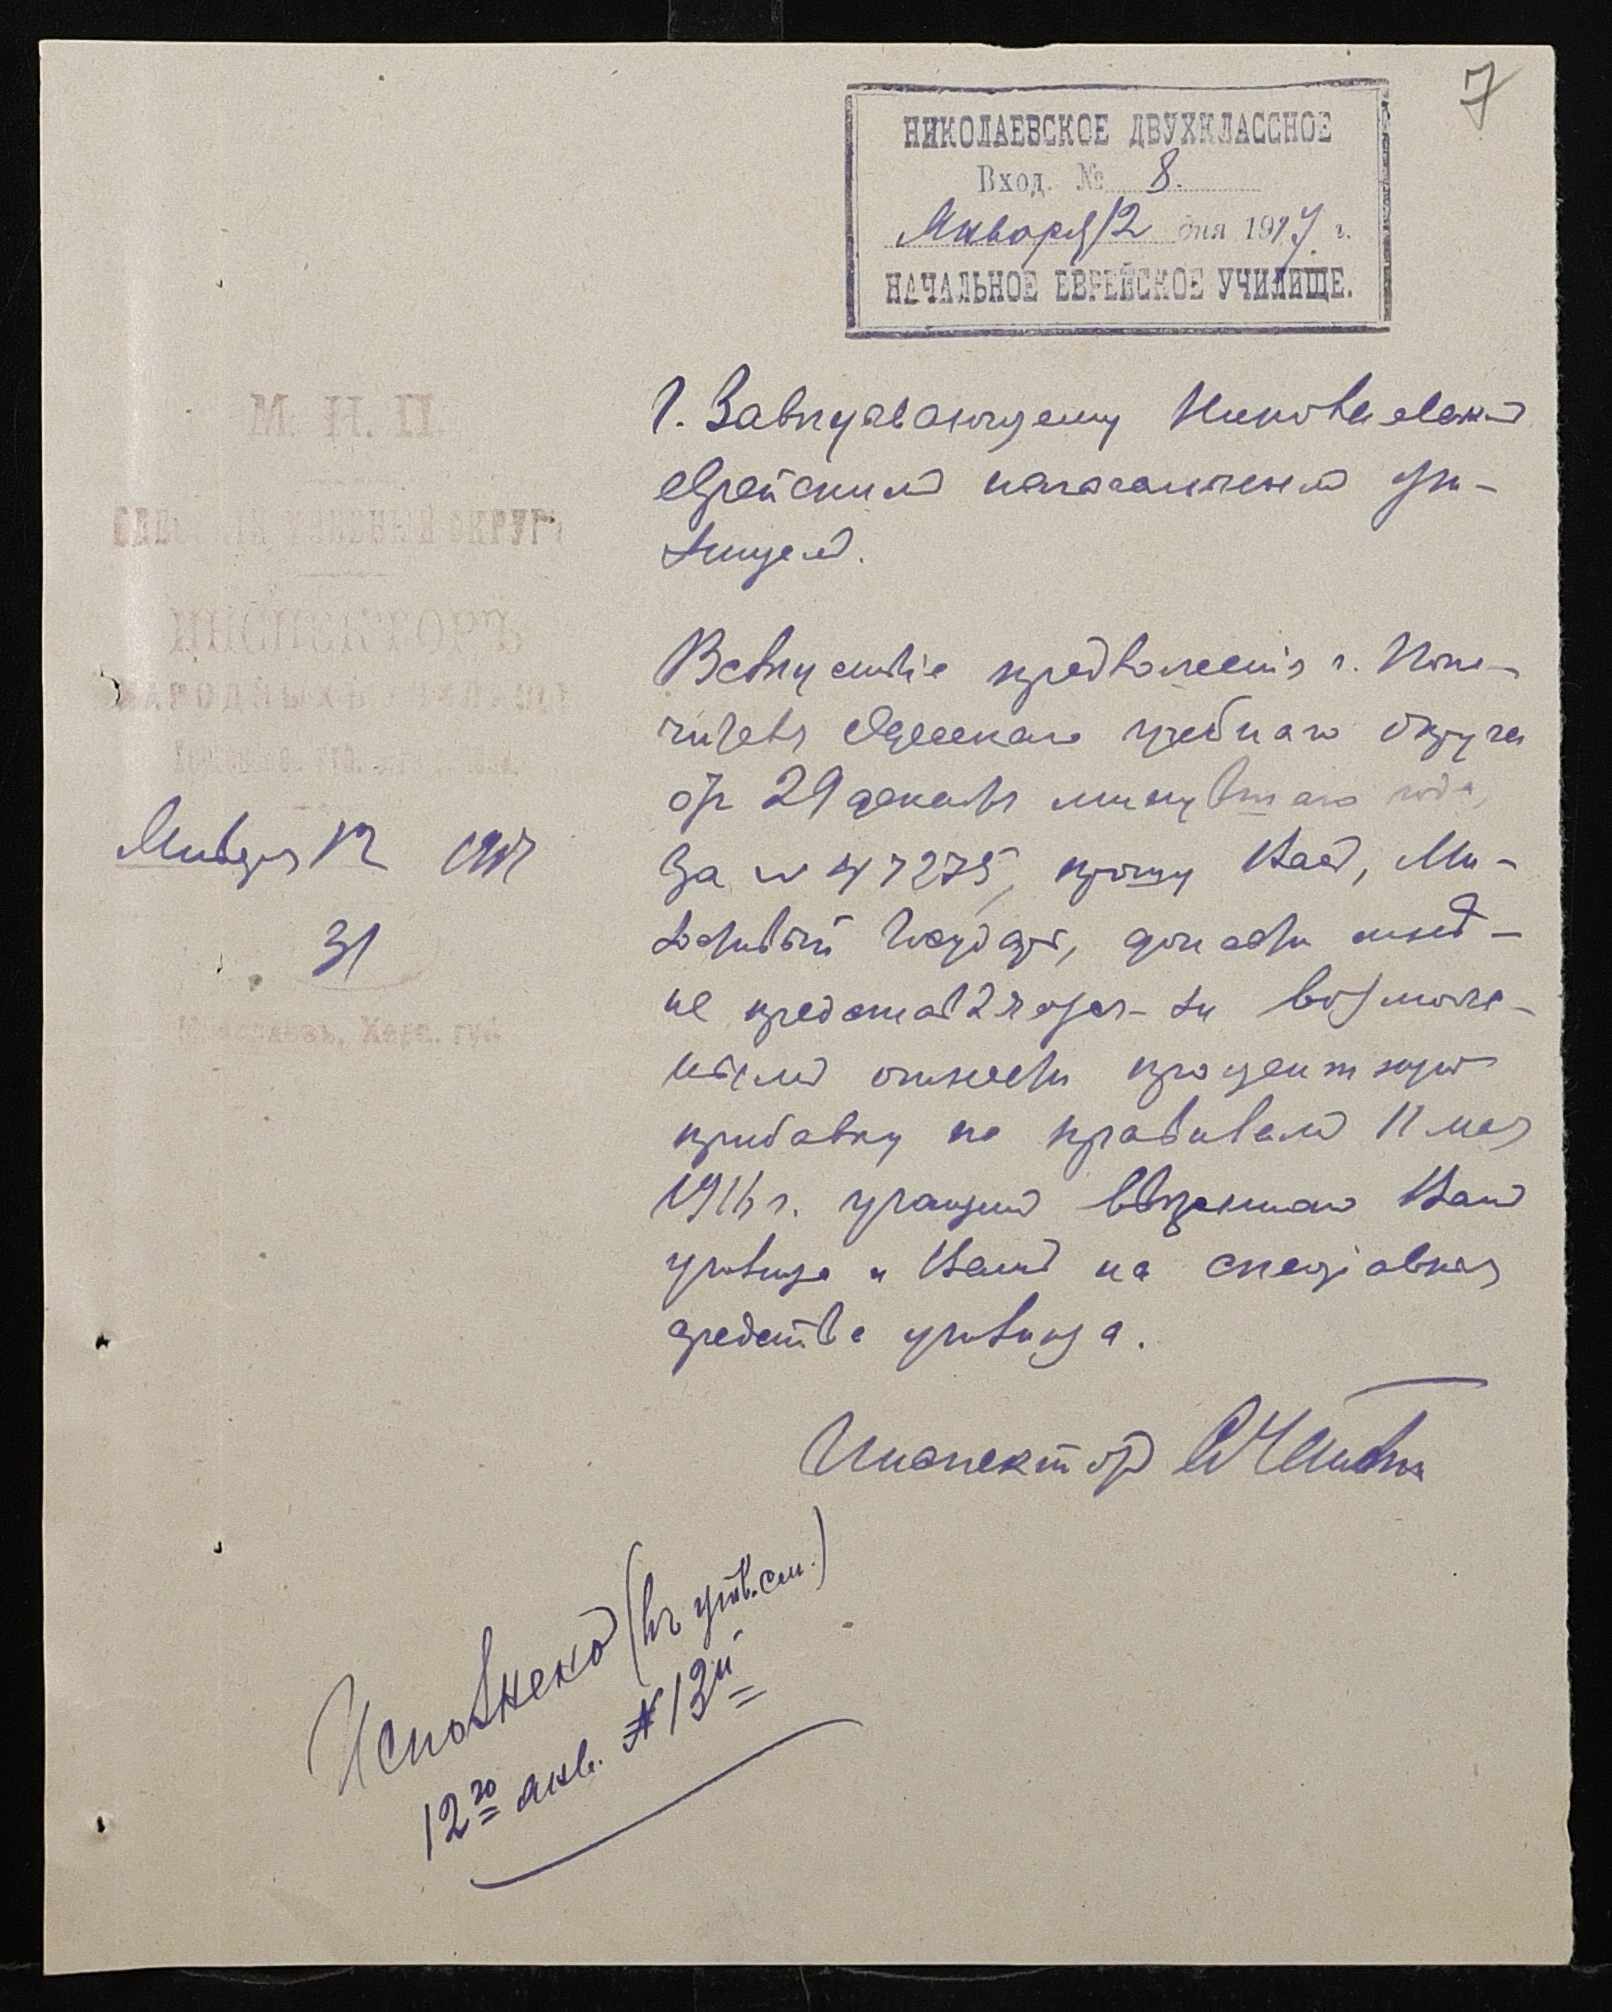 7
НИКОЛАЕВСКОЕ ДВУХКЛАССНОЕ
Вход. № 8.
Января 12 дня 1917 г.
НАЧАЛЬНОЕ ЕВРЕЙСКОЕ УЧИЛИЩЕ.
М. Н. П.
ОДЕССКІЙ УЧЕБНЫЙ ОКРУГЪ
ИНСПЕКТОРЪ
НАРОДНЫХЪ УЧИЛИЩЪ
Января 12 1917
31
Николаевъ, Херс. губ.
Г. Завѣдывающему Николаевскимъ
еврейскимъ начальнымъ учи-
лищемъ.
Вслѣдствіе предложенія г. Попе-
чителя Одесскаго учебнаго Округа
отъ 29 декабря минувшаго года,
за № 47275, прошу Васъ, Ми-
лостивый Государь, донести мнѣ-
не представляется-ли возмож-
нымъ отнести процентную
прибавку по правиламъ 11 мая
1916 г. учащимъ ввѣреннаго Вамъ
училища и Вамъ на спеціальныя
средства училища.
Инспекторъ
Исполнено (въ утв. см.)
12го янв. № 13й